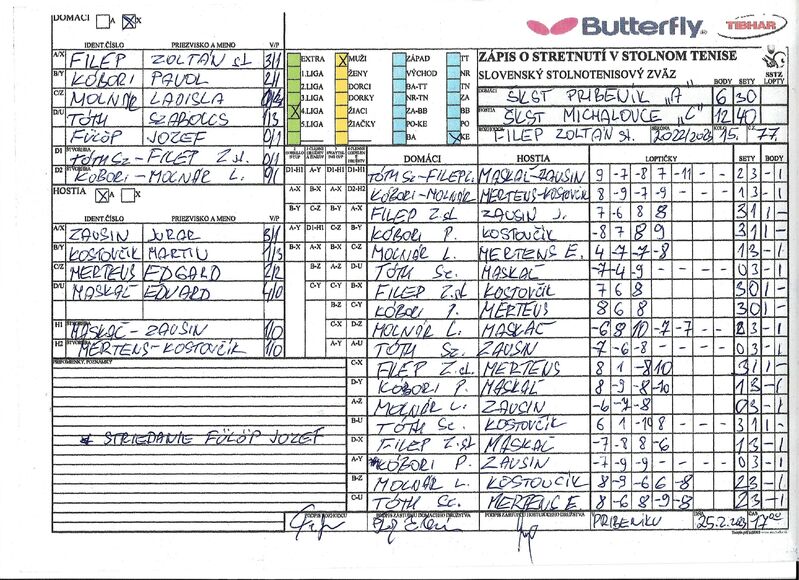 DOMÁCI A X
Butterfly
TIBHAR
IDENT.ČÍSLO PRIEZVISKO A MENO V/P
A/X FILEP ZOLTÁN st. 3/1
B/Y KÓBORI PAVOL 2/1
C/Z MOLNÁR LADISLA
D/U TÓTH SZABOLCS 1/3
FÜLÖP JOZEF 0/1
D1 TÓTH Sz-FILEP Z.st. 0/1
D2 KÓBORI-MOLNÁR L.
HOSTIA A X
IDENT.ČÍSLO PRIEZVISKO A MENO V/P
A/X ZAUSIN JURAR 3/1
B/Y KOSTOVČIK MARTIN 1/3
C/Z MERTEUS EDGARD 2/2
D/U MASKAĽ EDUARD 4/0
H1 MASKAĽ-ZAUSIN 1/0
H2 MERTENS-KOSTOVČIK 1/0
PRIPOMIENKY, POZNÁMKY
* STRIEDANIE FÜLÖP JOZEF
EXTRA MUŽI ZÁPAD TT
1.LIGA ŽENY VÝCHOD NR
2.LIGA DORCI BA-TT TN
3.LIGA DORKY NR-TN ZA
4.LIGA ŽIACI ZA-BB BB
5.LIGA ŽIAČKY PO-KE PO
BA KE
ZÁPIS O STRETNUTÍ V STOLNOM TENISE
SLOVENSKÝ STOLNOTENISOVÝ ZVÄZ
SSTZ
BODY SETY LOPTY
DOMÁCI ŠKST PRIBENÍK "A" 6 30
HOSTIA ŠKST MICHALOVCE "C" 12 40
ROZHODCA FILEP ZOLTÁN st. SEZÓNA 2022/2023 15. 77.
DOMÁCI HOSTIA LOPTIČKY SETY BODY
D1-H1 TÓTH Sz-FILEP Z. MASKAĽ-ZAUSIN 9 -7 -8 7 -11 2 3 - 1
D2-H2 KÓBORI-MOLNÁR MERTENS-KOSTOVČIK 8 -9 -7 -9 1 3 - 1
A-X FILEP Z.st ZAUSIN J. 7 -6 8 8 3 1 1 -
B-Y KÓBORI P. KOSTOVČIK -8 7 8 9 3 1 1 -
C-Z MOLNÁR L. MERTENS E. 4 -7 -7 -8 1 3 - 1
D-U TÓTH Sz. MASKAĽ -7 -4 -9 0 3 - 1
B-X FILEP Z.st KOSTOVČIK 7 6 8 3 0 1 -
KÓBORI P. MERTEUS 8 6 8 3 0 1 -
MOLNÁR L. MASKAĽ -6 8 10 -7 -7 2 3 - 1
A-U TÓTH Sz. ZAUSIN -7 -6 -8 0 3 - 1
C-X FILEP Z.st. MERTENS 8 1 -8 10 3 1 1 -
D-Y KÓBORI P. MASKAĽ 8 -9 -8 -10 1 3 - 1
A-Z MOLNÁR L. ZAUSIN -6 -7 -8 0 3 - 1
B-U TÓTH Sz. KOSTOVČIK 6 1 -10 8 3 1 1 -
D-X FILEP Z.st MASKAĽ -7 -8 8 -6 1 3 - 1
A-Y *KÓBORI P. ZAUSIN -7 -9 -9 0 3 - 1
B-Z MOLNÁR L. KOSTOVČIK 8 -9 -6 6 -8 2 3 - 1
C-U TÓTH Sz. MERTENS E 8 -6 8 -9 -8 2 3 - 1
PODPIS ROZHODCU PODPIS ZÁSTUPCU DOMÁCEHO DRUŽSTVA PODPIS ZÁSTUPCU HOSŤUJÚCEHO DRUŽSTVA V PRIBENÍKU 25.2.2023 17 00